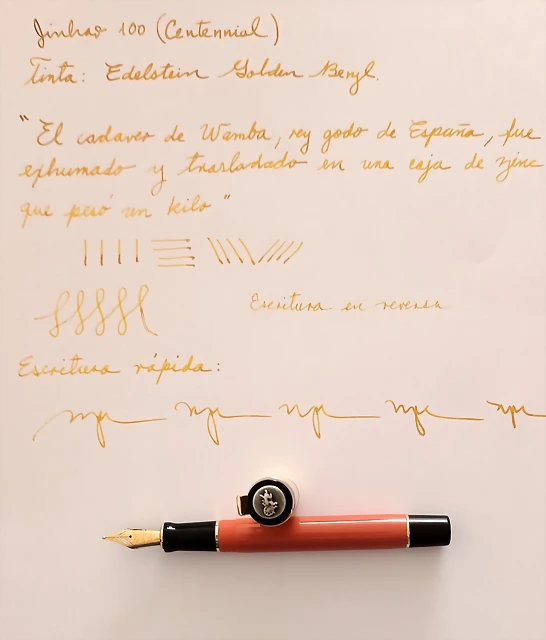 Jinhao 100 (Centennial)
Tinta: Edelstein Golden Beryl.
"El cadaver de Wamba, rey godo de España, fue
exhumado y trasladado en una caja de zinc
que pesó un kilo"
Escritura en reversa
Escritura rápida: